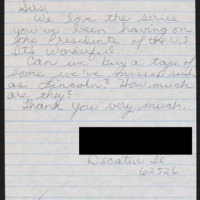 Sirs,
We love the series
you've been having on
the Presidents of the U.S.
It's Wonderful.
Can we buy a tape of
some we've missed such
as Lincoln? How much
are they?
Thank you very much.
Decatur Il
62526